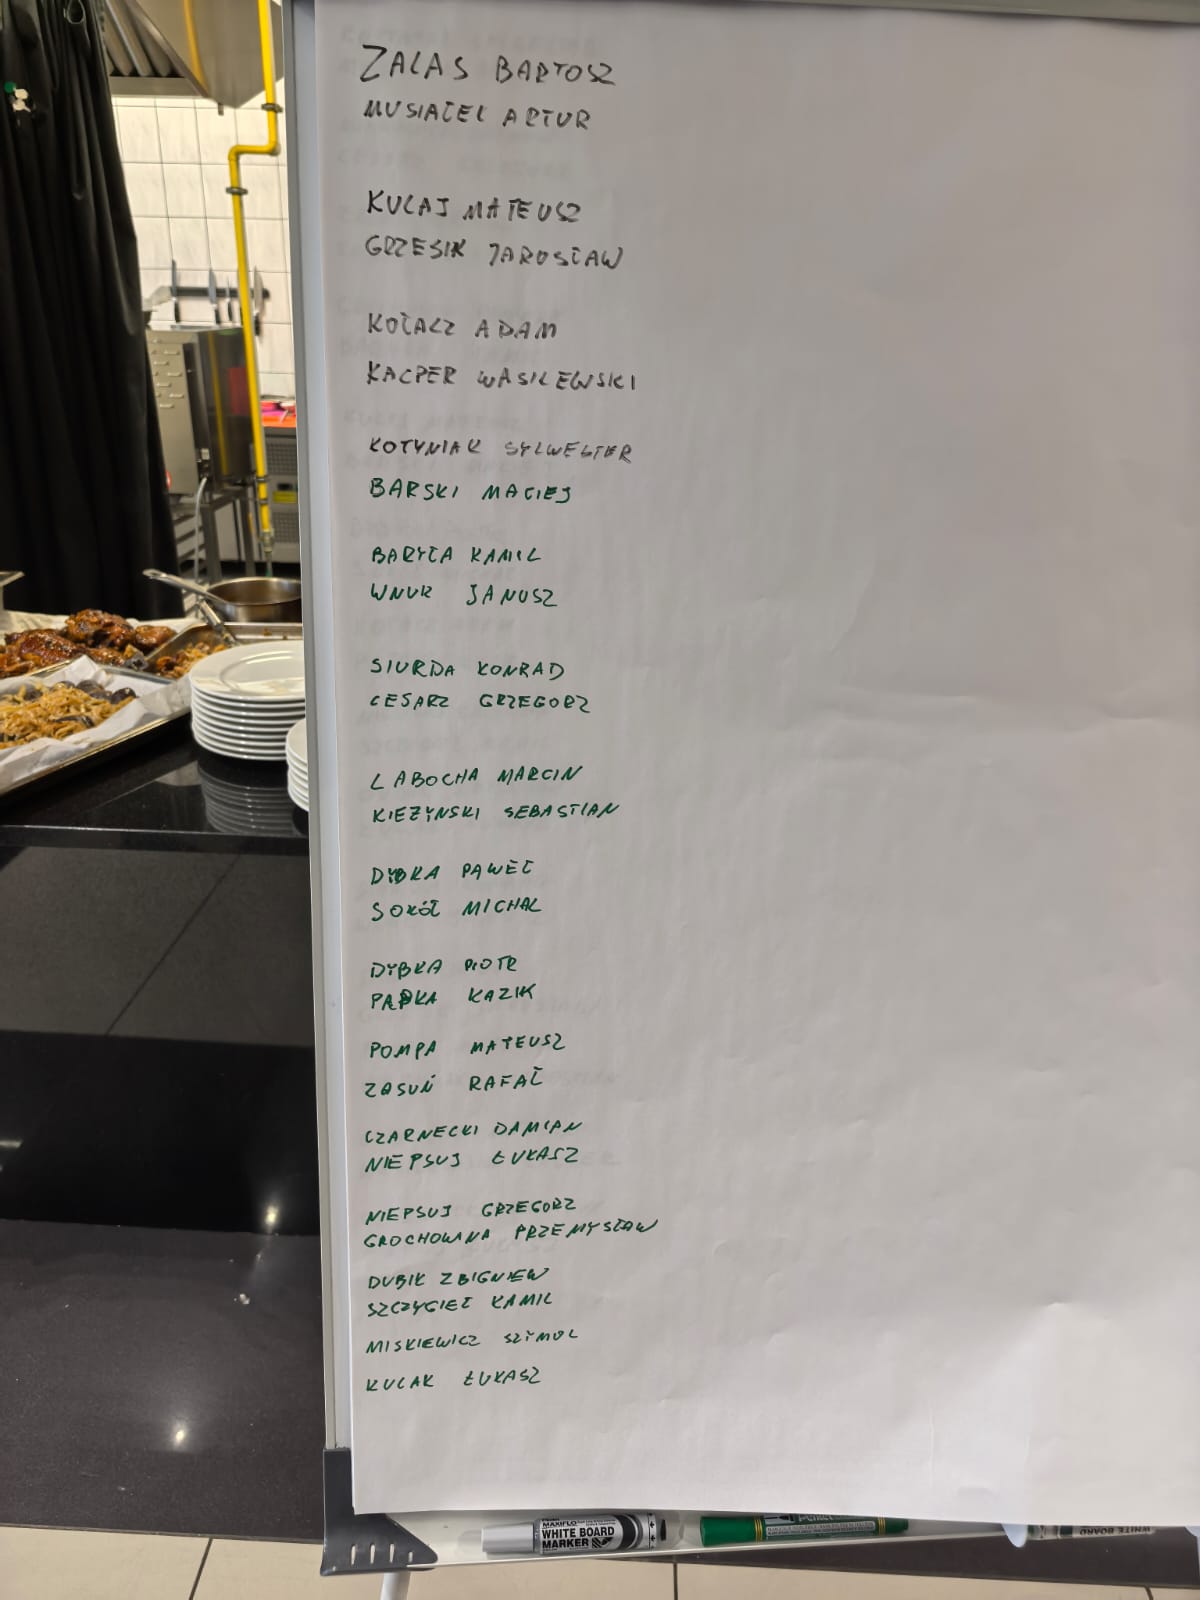 ZALAS BARTOSZ
MUSIAŁEK ARTUR
KULAJ MATEUSZ
GRZESIK JAROSŁAW
KOŁACZ ADAM
KACPER WASILEWSKI
KOTYNIAK SYLWESTER
BARSKI MACIEJ
BARYŁA KAMIL
WNUK JANUSZ
SIURDA KONRAD
CESARZ GRZEGORZ
LABOCHA MARCIN
KIEZYNSKI SEBASTIAN
DYBKA PAWEŁ
SOKÓŁ MICHAL
DYBKA PIOTR
KAZIK
POMPA MATEUSZ
ZASUŃ RAFAŁ
CZARNECKI DAMIAN
NIEPSUJ ŁUKASZ
NIEPSUJ GRZEGORZ
GROCHOWINA PRZEMYSŁAW
DUBIK ZBIGNIEW
SZCZYGIEŁ KAMIL
MISKIEWICZ
KULAK ŁUKASZ
MAXIFLO
WHITE BOARD
MARKER
WHITE BOARD